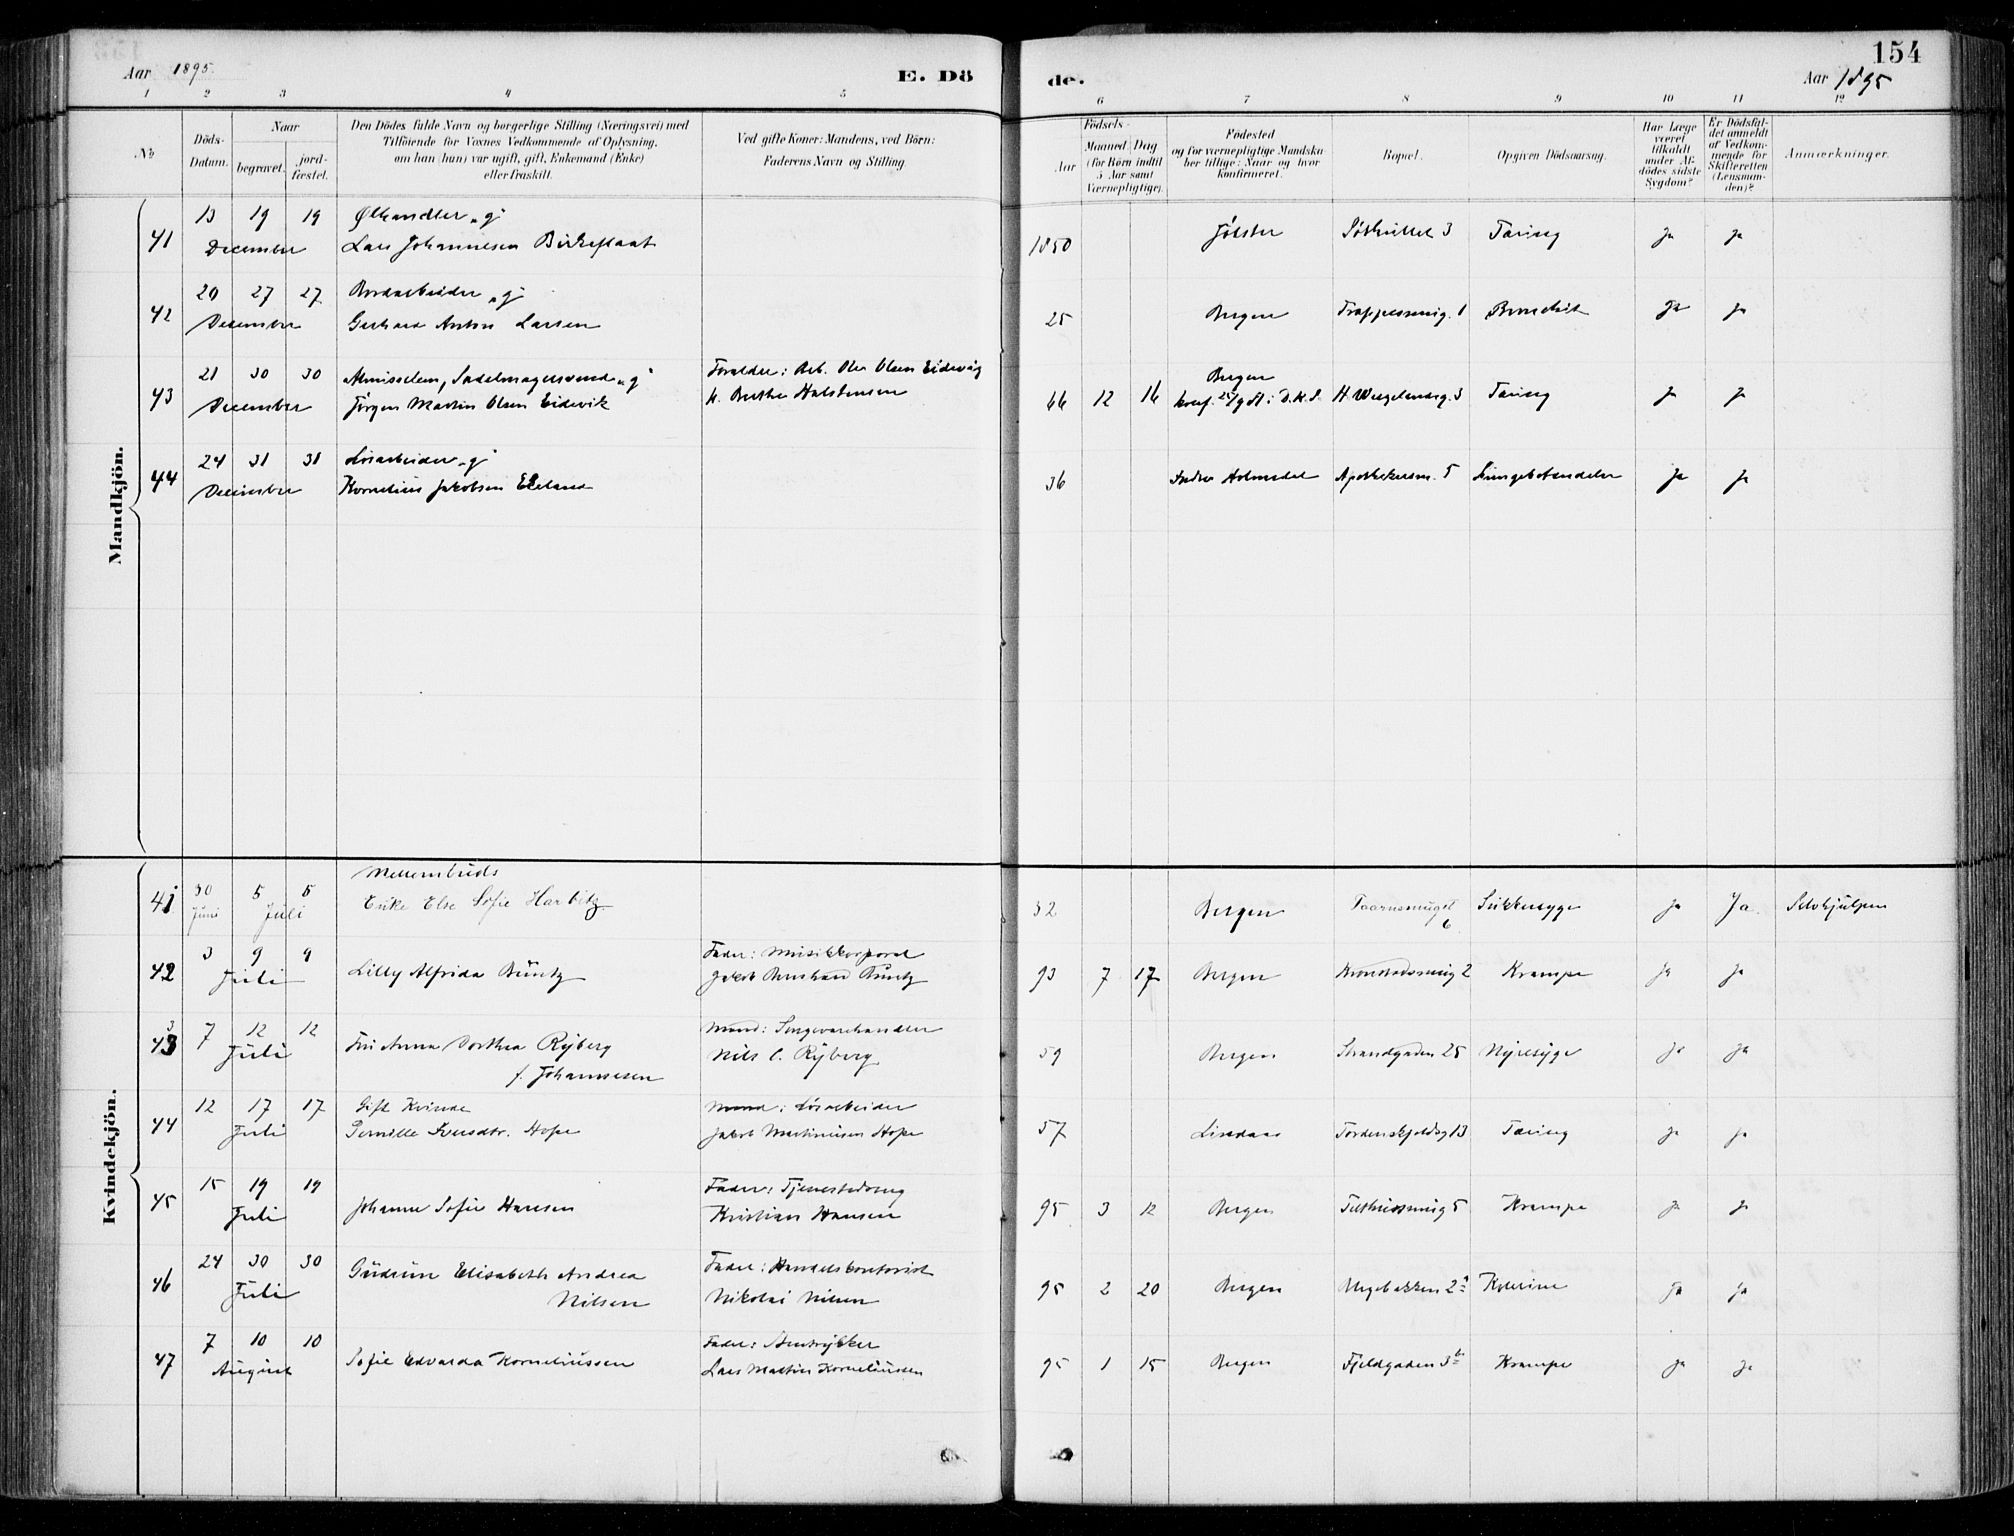 154
Aar 1895.
E. Dö
de.
Aar 1895
1 2 3 4 5
6 7 8 9 10 11 12
No
Döds-Datum.
Naar
begravet.
jord-fæstet.
Den Dödes fulde Navn og borgerlige Stilling (Næringsvei) med
Tilföiende for Voxnes Vedkommende af Oplysning,
om han (hun) var ugift, gift, Enkemand (Enke)
eller fraskilt.
Ved gifte Koner: Mandens, ved Börn:
Faderens Navn og Stilling.
Födsels-
Aar
Maaned
Dag
(for Börn indtil
5 Aar samt
Værnepligtige).
Födested
og for værnepligtige Mandska-
ber tillige: Naar og hvor
konfirmeret.
Bopæl.
Opgiven Dödsaarsag.
Har Læge
været
tilkaldt
under Af-
dödes sidste
Sygdom?
Er Dödsfal-
det anmeldt
af Vedkom-
mende for
Skifteretten
(Lensman-
den)?
Anmærkninger.
Mandkjön.
41 13 19 19 December
Ølhandler „g"
Lars Johannesen Birkeflaat
1850 Jølster 3 Tæring Ja Ja
42 20 27 27 December
Bordarbeider „g"
Gerhard Anton Larsen
25 Bergen 1 Bronchit Ja Ja
43 21 30 30 December
Almisselem, Sadelmagersvend „g"
Jörgen Martin Olsen Eidevik
Forældre: Arb. Ole Olsen Eidevig
H. Berthe Halstensen
66 12 16 Bergen
konf. D.K.S.
H. Wergelandsg. 3 Tæring Ja Ja
44 24 31 31 December
Løsarbeider „g"
Kornelius Jakobsen Eeland
36 Indre Holmedal Apothekersm. 5 Lungebetændelse Ja Ja
Kvindekjön.
41 30 Juni 5 5 Juli
Mellembuds
Enke Else Sofie Harbitz
32 Bergen Taarnsmuget 6 Sukkersyge Ja Ja Selvhjulpen
42 3 9 9 Juli
Lilly Alfrida Büntz
Fader: Musikkorporal
Jakob Bernhard Büntz
93 7 17 Bergen 2 Krampe Ja Ja
43 7 12 12 Juli
Fru Anna Dorthea Ryberg
f. Johannesen
Mand: Sengevarehandler
Nils C. Ryberg
59 Bergen Strandgaden 25 Nyresyge Ja Ja
44 12 17 17 Juli
Gift Kvinde
Pernille Iversdtr. Hope
Mand: Løsarbeider
Jakob Martinusen Hope
57 Lindaas Tordenskjoldsg 13 Tæring Ja Ja
45 15 19 19 Juli
Johanne Sofie Hansen
Fader: Tjenestedreng
Kristian Hansen
95 3 12 Bergen 5 Krampe Ja Ja
46 24 30 30 Juli
Gudrun Elisabeth Andrea
Nilsen
Fader: Handelskontorist
Nikolai Nilsen
95 2 20 Bergen 2a Kolerine Ja Ja
47 7 10 10 August
Sofie Edvarda Korneliussen
Fader: Stentrykker
Lars Martin Korneliussen
95 1 15 Bergen Fjeldgaden 3b Krampe Ja Ja